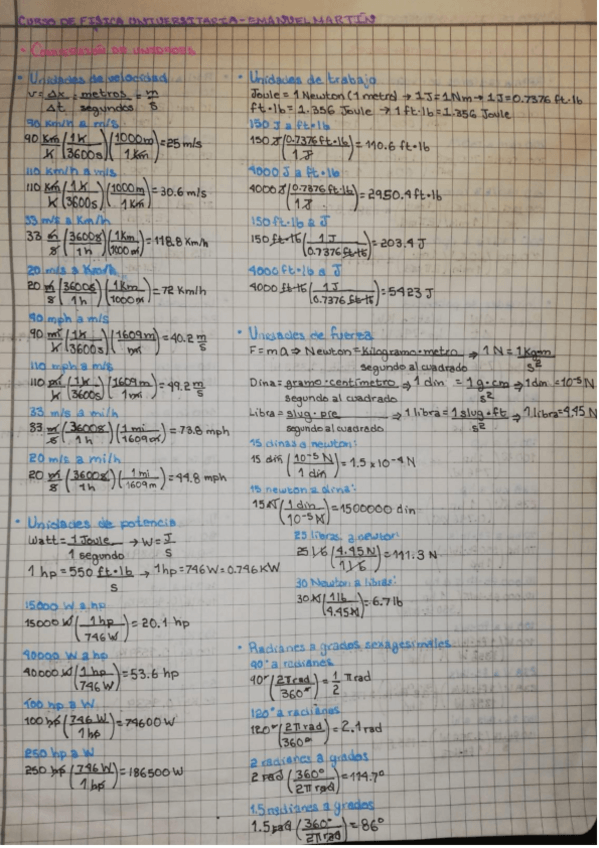 CURSO DE FISICA UNIVERSITARIA - EMANUEL MARTÍN
• CONVERSIÓN DE UNIDADES
• Unidades de velocidad
V = Δx / Δt : metros / segundos = m / s
90 km/h a m/s
90 km/h (1h / 3600s)(1000m / 1km) = 25 m/s
110 km/h a m/s
110 km/h (1h / 3600s)(1000m / 1km) = 30.6 m/s
33 m/s a Km/h
33 m/s (3600s / 1h)(1km / 1000m) = 118.8 Km/h
20 m/s a Km/h
20 m/s (3600s / 1h)(1km / 1000m) = 72 Km/h
90 mph a m/s
90 mi/h (1h / 3600s)(1609m / 1mi) = 40.2 m/s
110 mph a m/s
110 mi/h (1h / 3600s)(1609m / 1mi) = 49.2 m/s
33 m/s a mi/h
33 m/s (3600s / 1h)(1mi / 1609m) = 73.8 mph
20 m/s a mi/h
20 m/s (3600s / 1h)(1mi / 1609m) = 44.8 mph
• Unidades de potencia
Watt = 1 Joule / 1 segundo → W = J / s
1 hp = 550 ft·lb / s → 1hp = 746W = 0.746 KW
15000 W a hp
15000 W (1hp / 746W) = 20.1 hp
40000 W a hp
40000 W (1hp / 746W) = 53.6 hp
100 hp a W
100 hp (746W / 1hp) = 74600 W
250 hp a W
250 hp (746W / 1hp) = 186500 W
• Unidades de trabajo
Joule = 1 Newton (1 metro) → 1J = 1Nm → 1J = 0.7376 ft·lb
ft·lb = 1.356 Joule → 1 ft·lb = 1.356 Joule
150 J a ft·lb
150 J (0.7376 ft·lb / 1J) = 110.6 ft·lb
4000 J a ft·lb
4000 J (0.7376 ft·lb / 1J) = 2950.4 ft·lb
150 ft·lb a J
150 ft·lb (1J / 0.7376 ft·lb) = 203.4 J
4000 ft·lb a J
4000 ft·lb (1J / 0.7376 ft·lb) = 5423 J
• Unidades de fuerza
F = ma ⇒ Newton = Kilogramo·metro / segundo al cuadrado → 1 N = 1Kg·m / s²
Dina = gramo·centímetro / segundo al cuadrado → 1 din = 1g·cm / s² → 1din = 10⁻⁵ N
Libra = slug·pie / segundo al cuadrado → 1 libra = 1slug·ft / s² → 1 libra = 4.45 N
15 dinas a newton:
15 din (10⁻⁵ N / 1 din) = 1.5 x 10⁻⁴ N
15 newton a dina:
15 N (1 din / 10⁻⁵ N) = 1500000 din
25 libras a newton:
25 lb (4.45 N / 1lb) = 111.3 N
30 Newton a libras:
30 N (1lb / 4.45N) = 6.7 lb
• Radianes a grados sexagesimales
90° a radianes
90° (2π rad / 360°) = 1/2 π rad
120° a radianes
120° (2π rad / 360°) = 2.1 rad
2 radianes a grados
2 rad (360° / 2π rad) = 114.7°
1.5 radianes a grados
1.5 rad (360° / 2π rad) = 86°